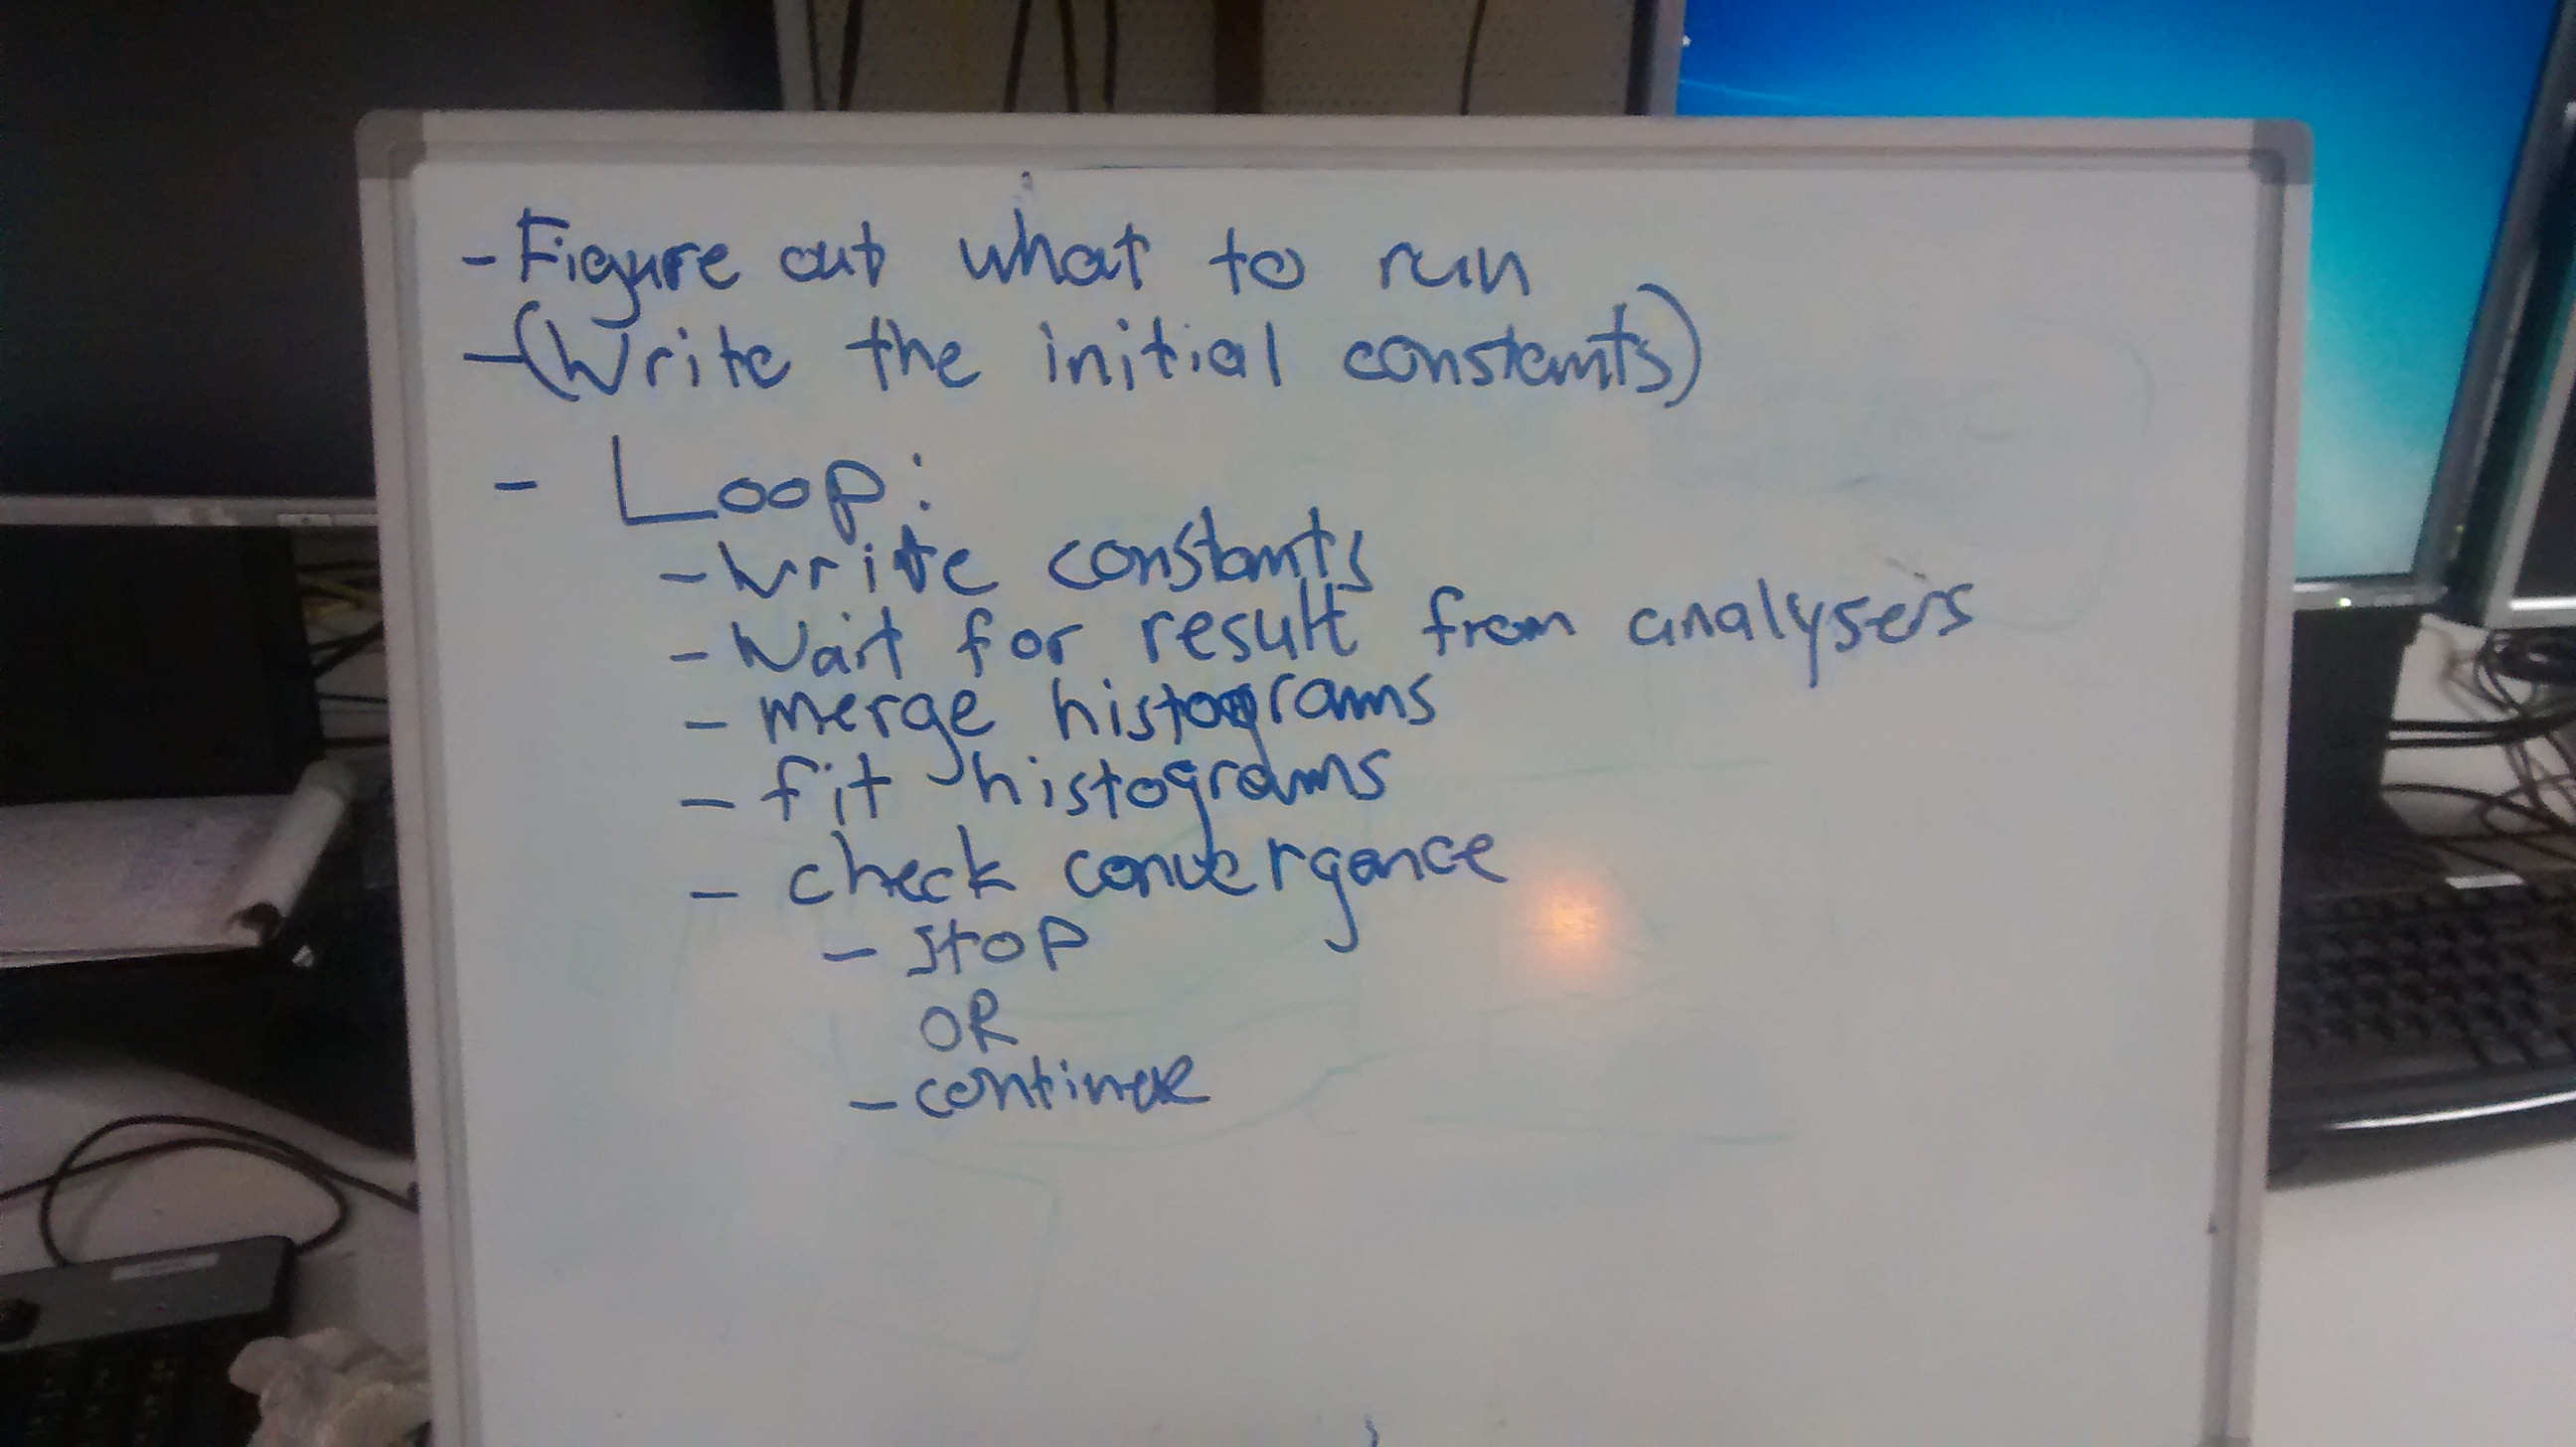 - Figure out what to run
- (Write the initial constants)
- Loop:
- Write constants
- Wait for result from analysers
- merge histograms
- fit histograms
- check convergance
- stop
OR
- continue